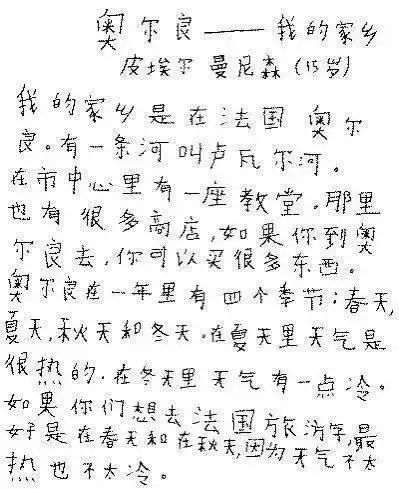 奥尔良——我的家乡
皮埃尔 曼尼森 (15岁)
我的家乡是在法国 奥尔
良。有一条河叫卢瓦尔河。
在市中心里有一座教堂。那里
也有很多商店,如果你到奥
尔良去,你可以买很多东西。
奥尔良在一年里有四个季节:春天,
夏天,秋天和冬天.在夏天里天气是
很热的.在冬天里天气有一点冷。
如果你们想去法国旅游,最
好是在春天和在秋天,因为天气不太
热也不太冷。